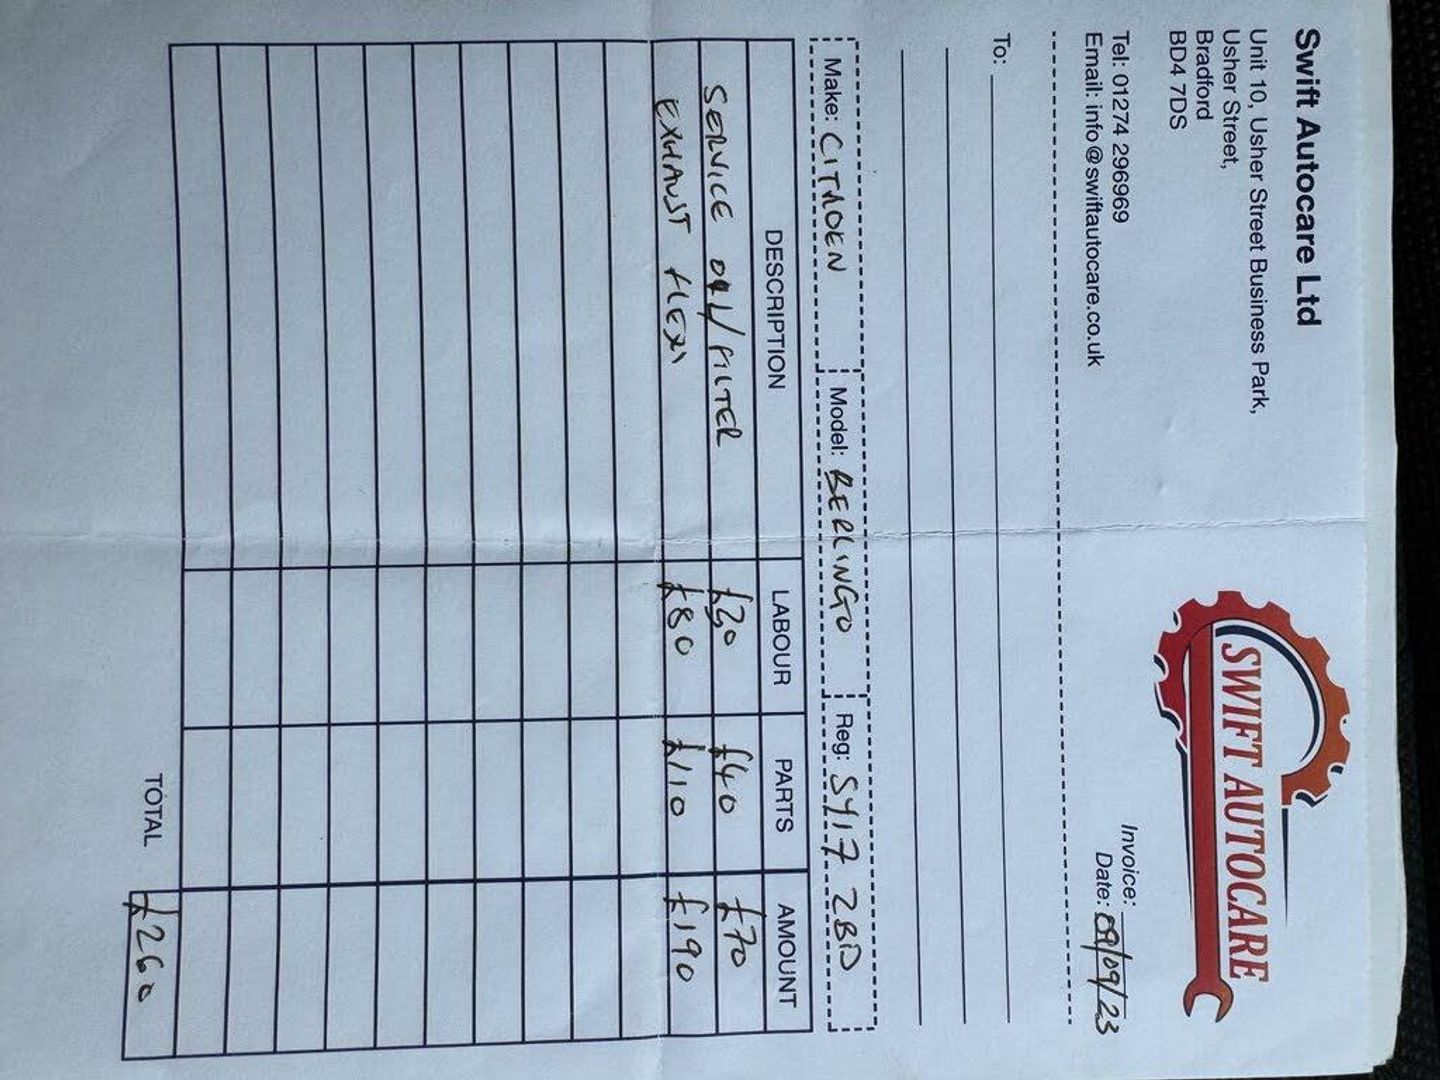 Swift Autocare Ltd
Unit 10, Usher Street Business Park,
Usher Street,
Bradford
BD4 7DS
SWIFT AUTOCARE
Tel: 01274 296969
Email: info@swiftautocare.co.uk
Invoice:
Date: 09/09/23
To:
Make: CITROEN Model: BERLINGO Reg: SY17 ZBD
DESCRIPTION LABOUR PARTS AMOUNT
SERVICE OIL/FILTER £30 £40 £70
EXHAUST FLEXI £80 £110 £190
TOTAL £260